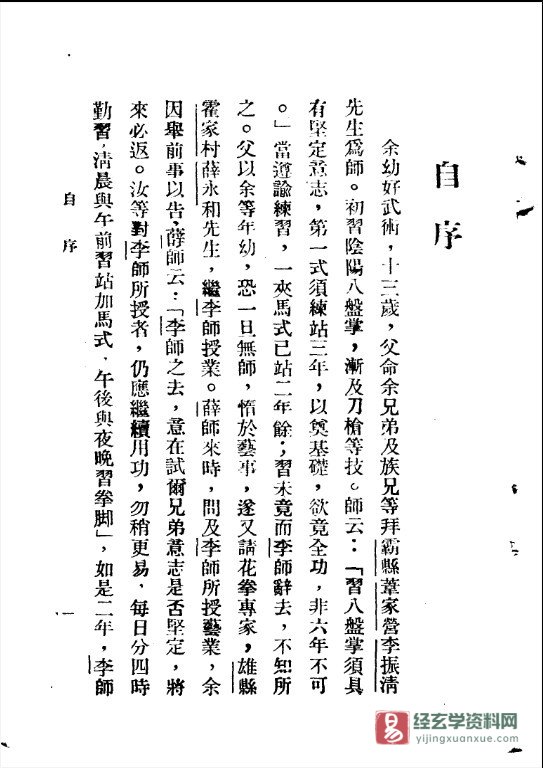 自序
余幼好武術，十三歲，父命余兄弟及族兄等拜霸縣葦家營李振清
先生爲師。初習陰陽八盤掌，漸及刀槍等技。師云：「習八盤掌須具
有堅定意志，第一式須練站三年，以奠基礎，欲竟全功，非六年不可
。」當遵諭練習，一夾馬式已站二年餘；習未竟而李師辭去，不知所
之。父以余等年幼，恐一旦無師，惰於藝事，遂又請花拳專家，雄縣
霍家村薛永和先生，繼李師授業。薛師來時，問及李師所授藝業，余
因舉前事以告，薛師云：「李師之去，意在試爾兄弟意志是否堅定，將
來必返。汝等對李師所授者，仍應繼續用功，勿稍更易，每日分四時
勤習，清晨與午前習站加馬式，午後與夜晚習拳脚」，如是二年，李師
自序
一
易
经玄学资料网
yijingxuanxue.com